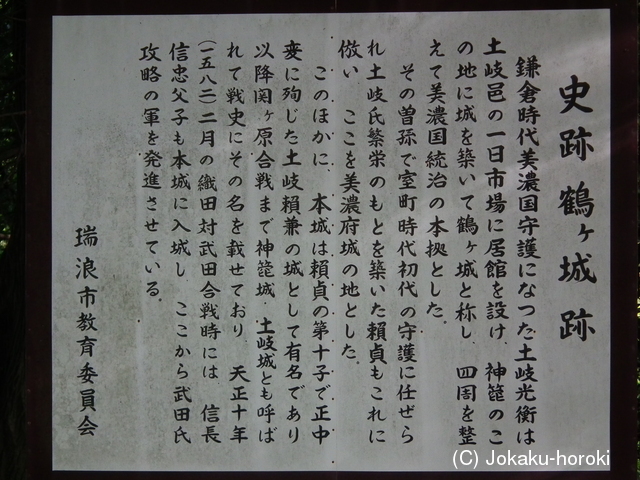 史跡鶴ヶ城跡
鎌倉時代美濃国守護になつた土岐光衡は
土岐邑の一日市場に居館を設け、神箆のこ
の地に城を築いて鶴ヶ城と称し、四周を整
えて美濃国統治の本拠とした。
その曽孫で室町時代初代の守護に任ぜら
れ土岐氏繁栄のもとを築いた頼貞もこれに
倣い、ここを美濃府城の地とした。
このほかに、本城は頼貞の第十子で正中
変に殉じた土岐頼兼の城として有名であり
以降関ヶ原合戦まで神箆城、土岐城とも呼ば
れて戦史にその名を載せており、天正十年
(一五八二)二月の織田対武田合戦時には、信長
信忠父子も本城に入城し、ここから武田氏
攻略の軍を発進させている。
瑞浪市教育委員会
(C) Jokaku-horoki